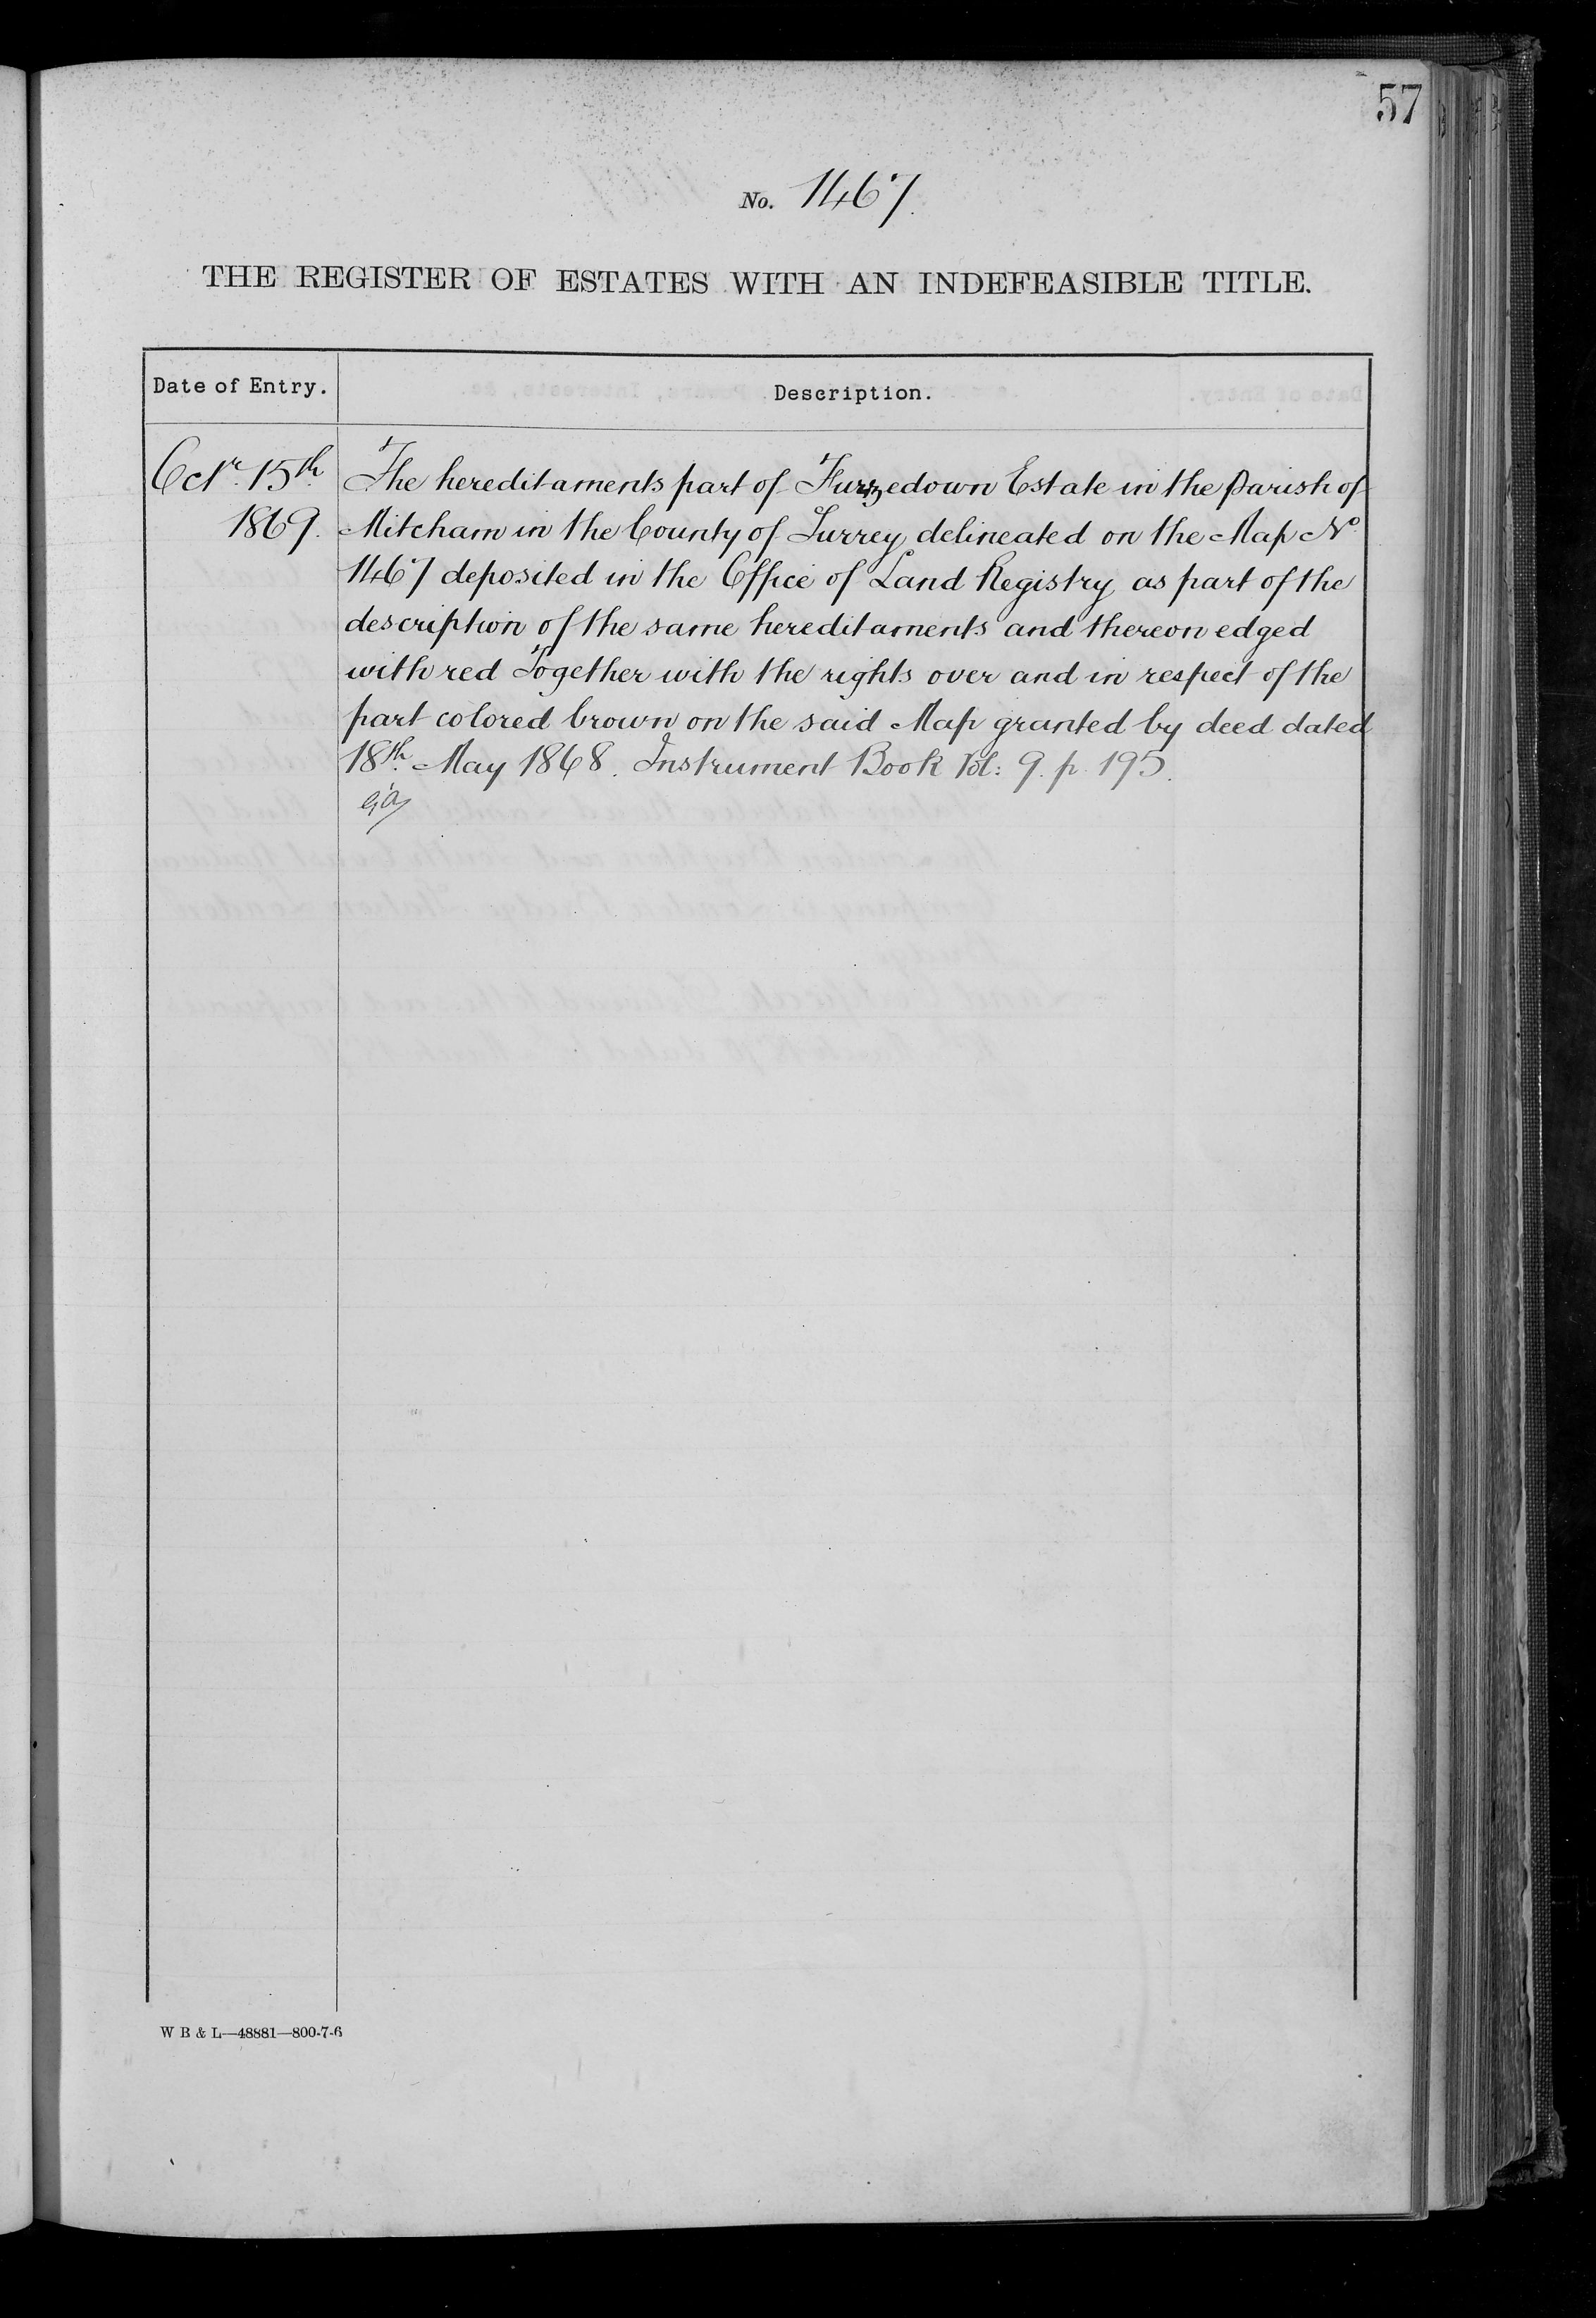 57
No. 1467.
THE REGISTER OF ESTATES WITH AN INDEFEASIBLE TITLE.
Date of Entry.
Description.
Octr. 15th.
1869.
The hereditaments part of Furzedown Estate in the Parish of
Mitcham in the County of Surrey delineated on the Map No.
1467 deposited in the Office of Land Registry as part of the
description of the same hereditaments and thereon edged
with red Together with the rights over and in respect of the
part colored brown on the said Map granted by deed dated
18th. May 1868. Instrument Book Vol: 9. p. 195.
W B & L—48881—800-7-6